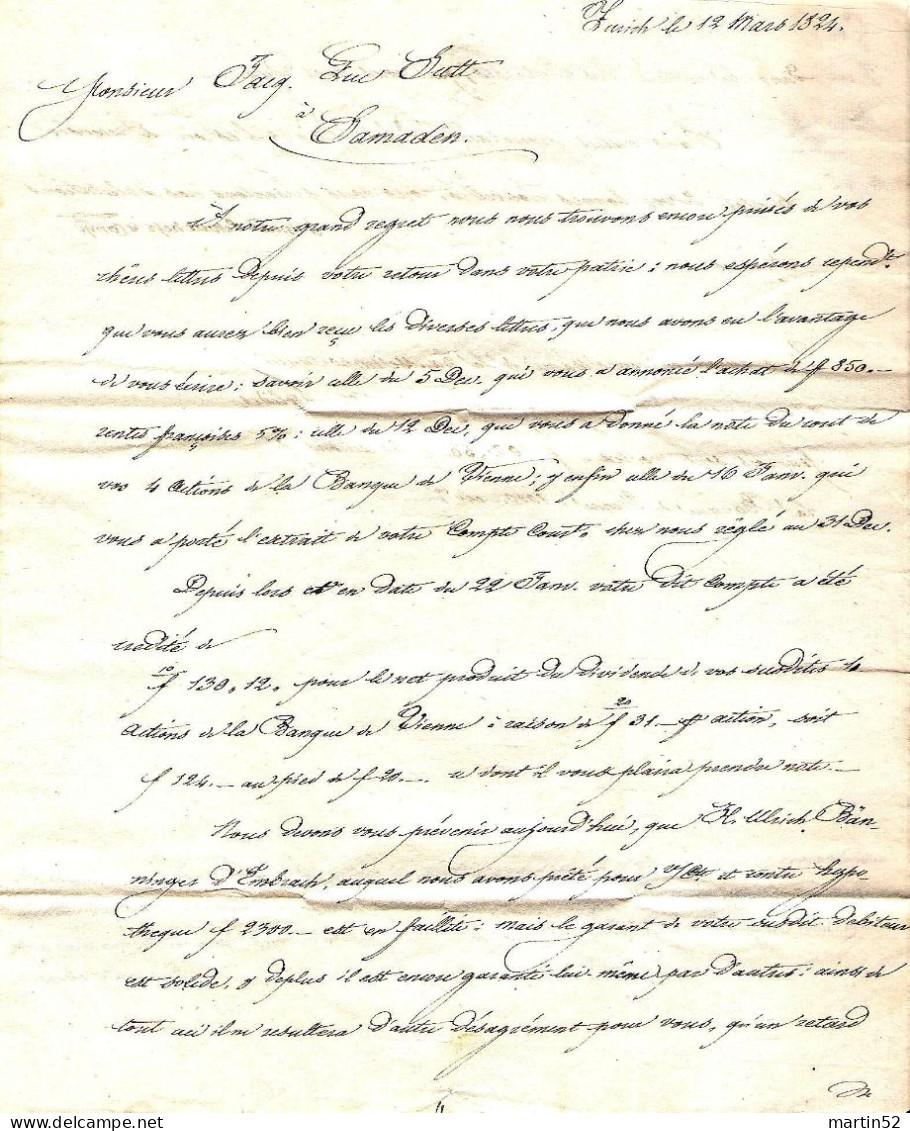 Zurich le 12 Mars 1824.
Monsieur Jacq. Luc Sutt
à
Samaden.
À notre grand regret nous nous trouvons encore privés de vos
chères lettres depuis votre retour dans votre patrie; nous espérons cependt.
que vous aurez bien reçu les diverses lettres, que nous avons eu l'avantage
de vous écrire; savoir celle du 5 Dec. qui vous a annoncé l'achat de 850.—
rentes françoises 5%; celle du 12 Dec, qui vous a donné la note du cout de
vos 4 Actions de la Banque de Vienne, & enfin celle du 16 Janv. qui
vous a porté l'extrait de votre Compte Court. chez nous réglé au 31 Dec.
Depuis lors et en date du 22 Janv. votre dit Compte a été
credité de
f 130.12. pour le net produit du dividende de vos susdites 4
Actions de la Banque de Vienne à raison de 20 f 31.— action, soit
f 124.— au pied de f 20.—. ce dont il vous plaira prendre note.—
Nous devons vous prévenir aujourd'hui, que H. Ulrich Bän-
ninger d'Embrach, auquel nous avons prêté pour v/Cte. et contre hypo
theque f 2300.— est en faillite; mais le garant de votre susdit debiteur
est solide, & deplus il est encore garanti lui même par d'autres; ainsi de
tout ceci il ne resultera d'autre désagrément pour vous, qu'un retard
martin52